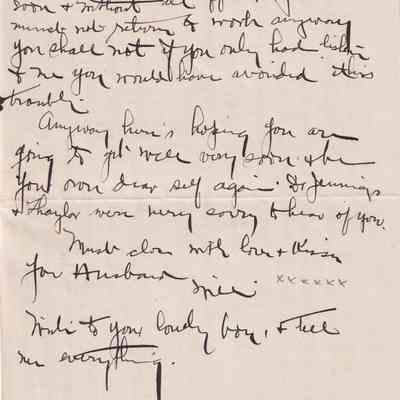 soon & without
must not return to work anyway
you shall not if you only had listen
to me you would have avoided this
trouble.
Anyway here's hoping you are
going to get well very soon & be
your own dear self again. Dr Jennings
& Thaylor were very sorry to hear of you.
Must close with love & Kisses
for Husband
xxxxxx
Write to your lonely boy, & tell
me everything.